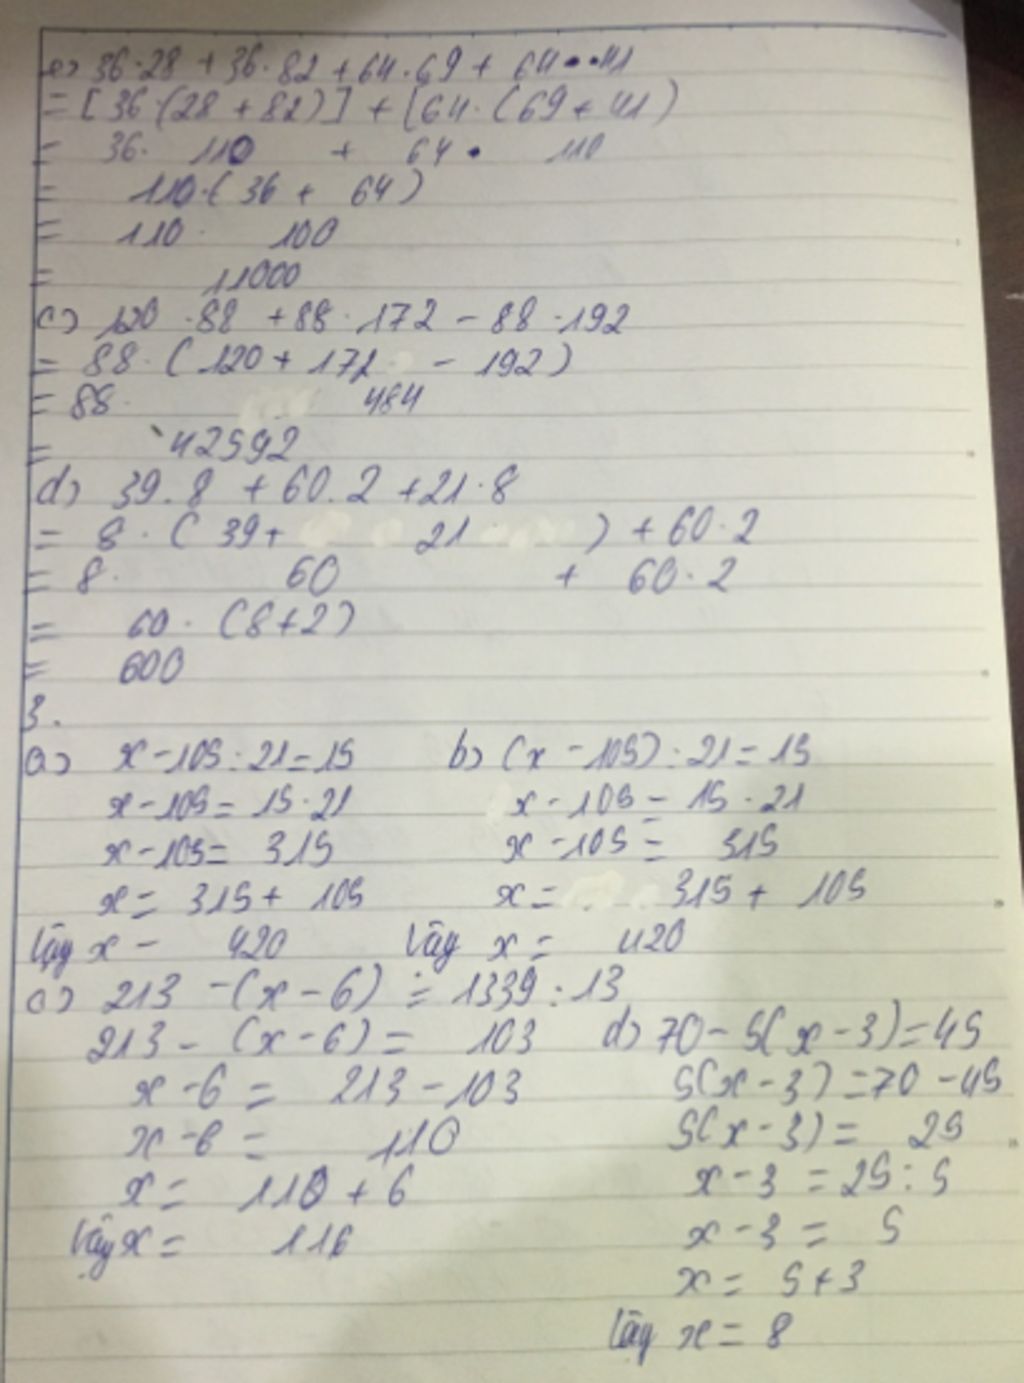 e) 36·28 + 36·82 + 64·69 + 64··41
= [36·(28 + 82)] + [64·(69 + 41)
= 36· 110 + 64· 110
= 110·(36 + 64)
= 110· 100
= 11000
c) 120 ·88 + 88·172 - 88·192
= 88·(120 + 172 - 192)
= 88· 484
= 42592
d) 39.8 + 60.2 + 21·8
= 8·(39 + 21) + 60·2
= 8· 60 + 60·2
= 60·(8+2)
= 600
3.
a) x - 105 : 21 = 15
x - 105 = 15·21
x - 105 = 315
x = 315 + 105
Vậy x = 420
b) (x - 105) : 21 = 15
x - 105 = 15·21
x - 105 = 315
x = 315 + 105
Vậy x = 420
c) 213 - (x - 6) = 1339 : 13
213 - (x - 6) = 103
x - 6 = 213 - 103
x - 6 = 110
x = 110 + 6
Vậy x = 116
d) 70 - 5(x - 3) = 45
5(x - 3) = 70 - 45
5(x - 3) = 25
x - 3 = 25 : 5
x - 3 = 5
x = 5 + 3
Vậy x = 8